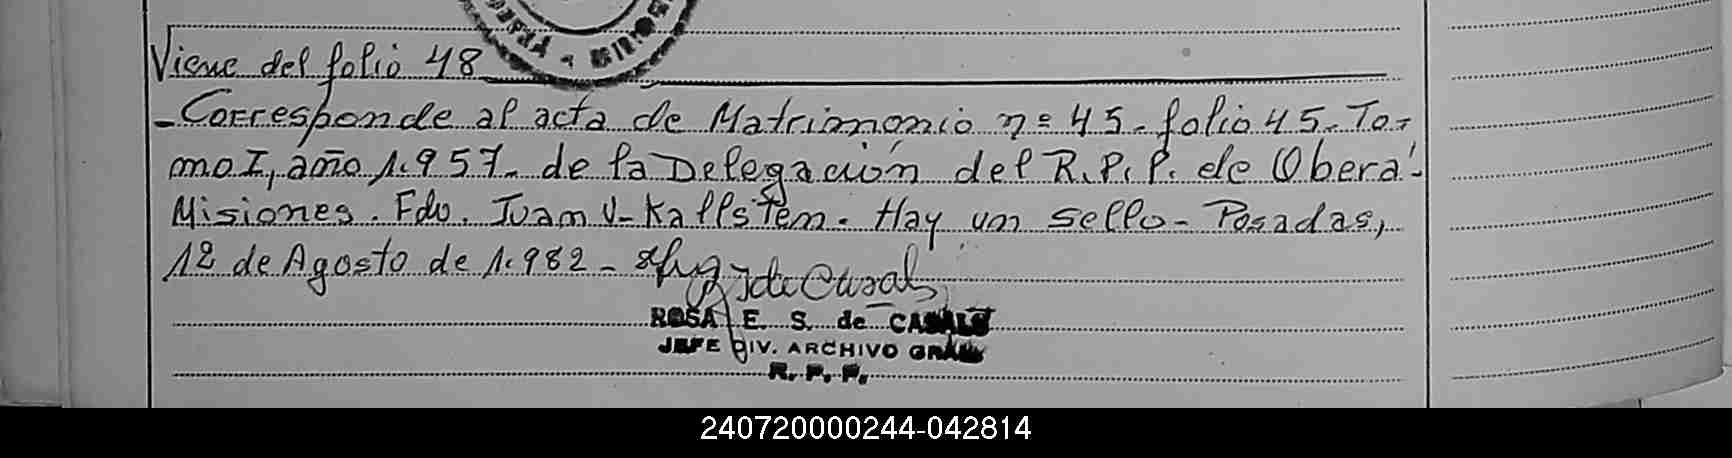 Viene del folio 48
-Corresponde al acta de Matrimonio nº 45. folio 45. To-
mo I, año 1.957. de la Delegación del R.P.P. de Oberá-
Misiones. Fdo. Juan V. Kallsten. Hay un sello - Posadas,
12 de Agosto de 1.982 -
ROSA E. S. de CASALS
JEFE DIV. ARCHIVO GRAL
R. P. P.
240720000244-042814